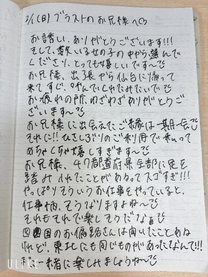 2/1(日)ブラストのお兄様へ♡
お誘い、ありがとうございます!!!
そして、数いる女の子の中から選んで
くださり、とっても嬉しいです〜
お兄様、出張から仙台に帰って
来てすぐ、呼んでくれたいでた♡
お疲れの所、わざわざありがとうご
ざいます〜
お兄様に出会えたご縁は一期一会で
それに!!ひさしぶりのご利用で会いって
めちゃくちゃ嬉しすぎます〜♡
お兄様、47都道府県全部に足を
踏み入れたことがあるってスゴすぎ!!!
やっぱりそういうお仕事のやっていると、
仕事柄、そうなりますよね〜
それもそれで楽しそうだなぁ
四国のお遍路さんは聞いたことある
けれど、東北にも同じものがあったなんて!!!
また一緒に楽しみましょうね〜♡